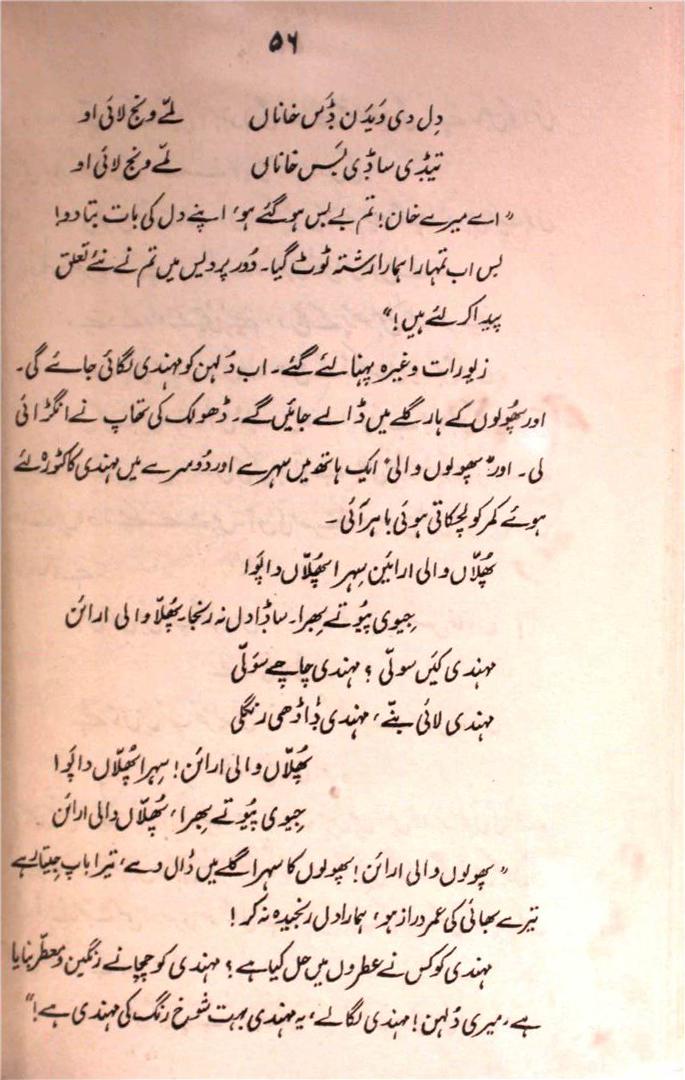 ۵۶
دِل دی ویدَن ڈَس خاناں لمّے ونج لائی او
تیڈی ساڈی بَس خاناں لمّے ونج لائی او
”اے میرے خان! تم بے بس ہو گئے ہو، اپنے دل کی بات بتا دو!
بس اب تمہارا ہمارا رشتہ ٹوٹ گیا۔ دُور پردیس میں تم نے نئے تعلق
پیدا کر لئے ہیں!“
زیورات وغیرہ پہنا لئے گئے۔ اب دُلہن کو مہندی لگائی جائے گی۔
اور پھُولوں کے ہار گلے میں ڈالے جائیں گے۔ ڈھولک کی تھاپ نے انگڑائی
لی۔ اور ”پھولوں والی“ ایک ہاتھ میں سہرے اور دُوسرے میں مہندی کا کٹورہ لئے
ہوئے کمر کو لچکاتی ہوئی باہر آئی۔
پھُلاّں والی ارائین سہرا پھُلاّں دا پَوا
جیوی پیُو تے بھِرا۔ ساڈا دل نہ رنجا۔ پھُلاّ والی ارائن
مہندی کیَں سولّی ؟ مہندی چاچے سَولّی
مہندی لائی بنّے، مہندی ڈاڈھی رنگلی
پھُلاّں والی ارائن! سہرا پھُلاّں دا پَوا
جیوی پیُو تے بھِرا، پھُلاّں والی ارائن
”پھولوں والی ارائن! پھولوں کا سہرا گلے میں ڈال دے، تیرا باپ جیتا رہے
تیرے بھائی کی عمر دراز ہو، ہمارا دل رنجیدہ نہ کر!
مہندی کو کس نے عطروں میں حل کیا ہے؟ مہندی کو چچا نے رنگین و معطّر بنایا
ہے، میری دُلہن! مہندی لگا لے، یہ مہندی بہت شوخ رنگ کی مہندی ہے!“